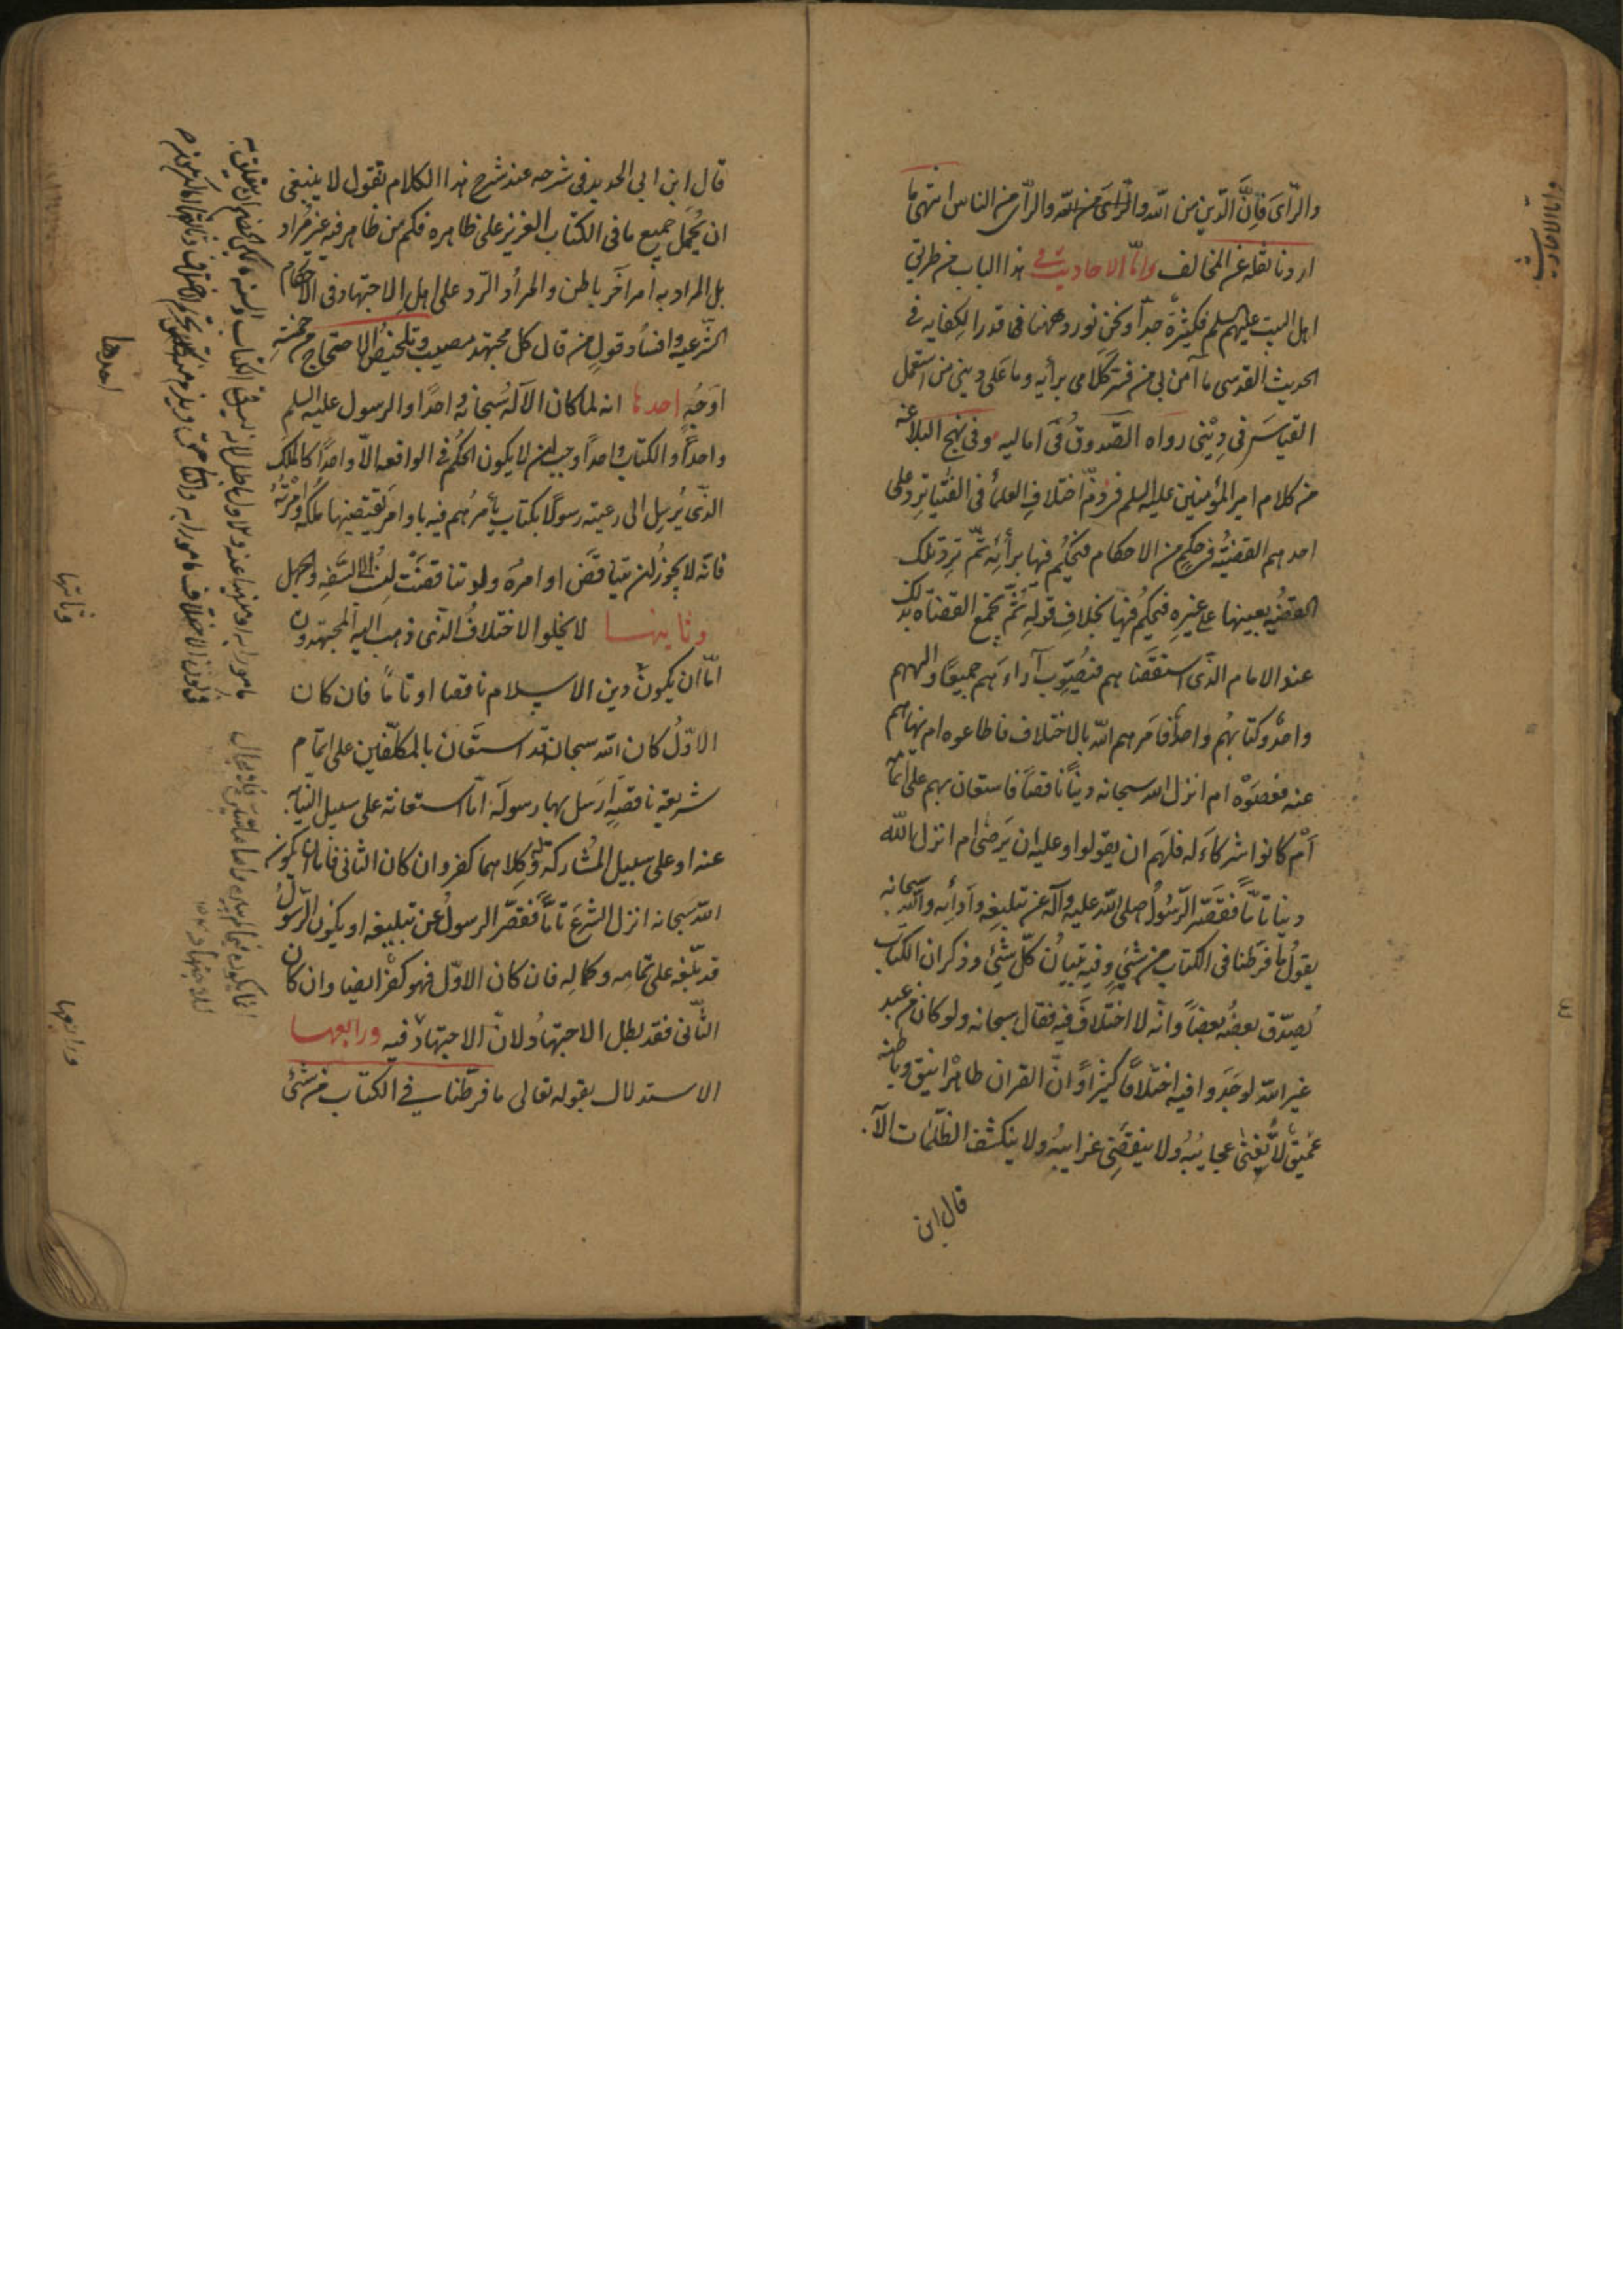 والرّأى فانّ الدّين من اللّه والرّاى من اللّه والرّأى من الناس انتهى ما
اردنا نقله عن المخالف وامّا الاحاديث فى هذا الباب من طرق
اهل البيت عليهم السلم فكثيرة جدّاً ونحن نورد ههنا ما فى قدر الكفايه فى
الحديث القدسى ما آمن بى من فسّر كلامى برأيه وما على دينى من استعمل
القياس فى دينى رواه الصّدوق فى اماليه وفى نهج البلاغة
من كلام امير المؤمنين عليه السلم فى ذمّ اختلاف العلمأ فى الفتيا ترد على
احدهم القضيّة فى حكم من الاحكام فيحكم فيها برأيه ثمّ ترد تلك
القضيّه بعينها على غيره فيحكم فيها بخلاف قوله ثمّ يجتمع القضاة بذلك
عند الامام الذى استقضاهم فيصوّب آراءهم جميعاً والههم
واحدٌ وكتابهم واحدٌ أفامرهم اللّه بالاختلاف فاطاعوه ام نهاهم
عنه فعصوه ام انزل اللّه سبحانه ديناً ناقصاً فاستعان بهم على اتمامه
أم كانوا شركاء له فلهم ان يقولوا وعليه ان يرضى ام انزل اللّه
دينا تامّاً فقصّر الرّسول صلى اللّه عليه وآله عن تبليغه وأدائه واللّه سبحانه
يقول ما فرّطنا فى الكتاب من شئ وفيه تبيان كلّ شئ وذكر ان الكتاب
يصدّق بعضه بعضاً وانّه لا اختلاف فيه فقال سبحانه ولو كان من عند
غير اللّه لوجدوا فيه اختلافاً كثيراً وانّ القران ظاهره انيق وباطنه
عميق لا تفنى عجايبه ولا ينقضى غرايبه ولا ينكشف الظّلمات الّا
قال ابن
وامّا الاحاديث
قال ابن ابى الحديد فى شرحه عند شرح هذا الكلام يقول لا ينبغى
ان يحمل جميع ما فى الكتاب العزيز على ظاهره فكم من ظاهر فيه غير مراد
بل المراد به امر آخر باطن والمراد الرّد على اهل الاجتهاد فى الاحكام
الشّرعيه وافساد قول من قال كل مجتهد مصيب وتلخيص الاحتجاج من خمسة
اوجه احدها انه لما كان الآله سبحانه واحداً والرسول عليه السلم
واحداً والكتاب واحداً وجب ان لا يكون الحكم فى الواقعه الّا واحداً كالملك
الذى يرسل الى رعيته رسولًا بكتاب يأمرهم فيه باوامر يقتضيها ملكه وامرته
فانّه لا يجوز ان يتناقض اوامره ولو تناقضت لنسب الى السّفه والجهل
وثانيها لا يخلو الاختلاف الذى ذهب اليه المجتهدون
امّا ان يكون دين الاسلام ناقصا او تامّاً فان كان
الاوّل كان اللّه سبحانه قد استعان بالمكلّفين على اتمام
شريعة ناقصةٍ ارسل بها رسوله امّا استعانة على سبيل النّيابة
عنه او على سبيل المشاركة له وكلاهما كفر وان كان الثانى فامّا ان يكون
اللّه سبحانه انزل الشرع تامّاً فقصّر الرسول عن تبليغه او يكون الرّسول
قد بلّغه على تمامه وكماله فان كان الاوّل فهو كفر ايضا وان كان
الثّانى فقد بطل الاجتهاد لانّ الاجتهاد فيه ورابعها
الاستدلال بقوله تعالى ما فرّطنا فى الكتاب من شئ
احدها
وثانيها
ورابعها